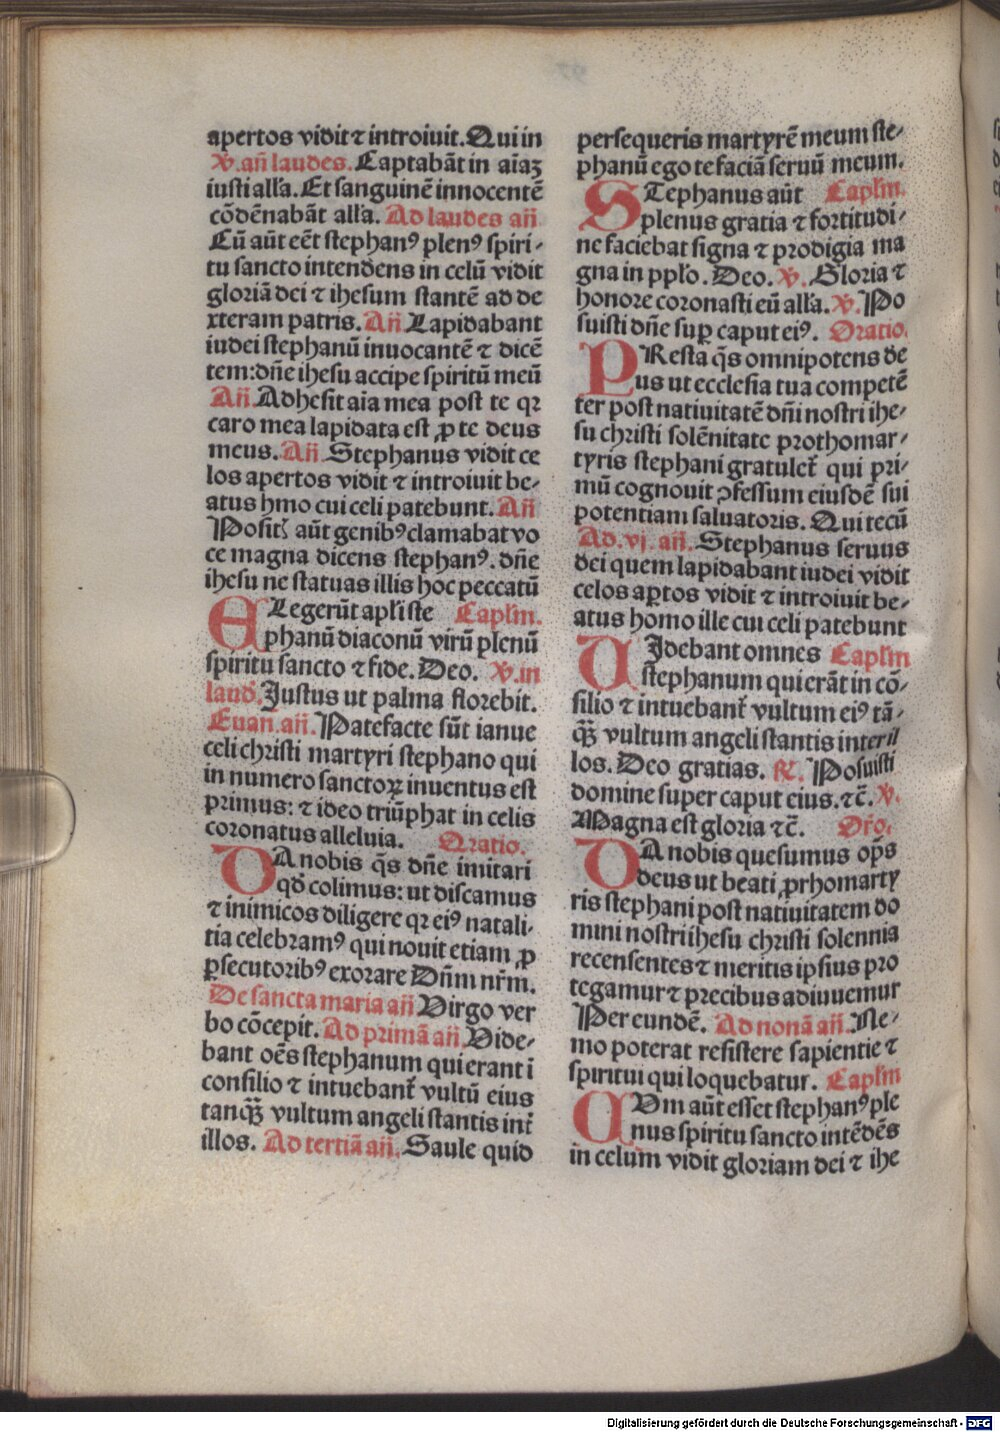 apertos vidit ⁊ introiuit. Qui in
V̇. an̄ laudes. Captabāt in aīaꝫ
iusti alľa. Et sanguinē innocentē
cōdēnabāt alľa. Ad laudes an̄
Cū aūt eēt stephanꝰ plenꝰ spiri-
tu sancto intendens in celū vidit
gloriā dei ⁊ ihesum stantē ad de
xteram patris. An̄ Lapidabant
iudei stephanū inuocantē ⁊ dicē
tem: dn̄e ihesu accipe spiritū meū
An̄ Adhesit aīa mea post te qꝛ
caro mea lapidata est ꝓ te deus
meus. An̄ Stephanus vidit ce
los apertos vidit ⁊ introiuit be-
atus hmo cui celi patebunt. An̄
Positꝭ aūt genibꝰ clamabat vo
ce magna dicens stephanꝰ. dn̄e
ihesu ne statuas illis hoc peccatū
ELegerūt apľi ste Capľm.
phanū diaconū virū plenū
spiritu sancto ⁊ fide. Deo. V̇. in
laud̄. Justus ut palma florebit.
Euan̄. an̄. Patefacte sūt ianue
celi christi martyri stephano qui
in numero sanctoꝝ inuentus est
primus: ⁊ ideo triūphat in celis
coronatus alleluia. Oratio.
DA nobis q̄s dn̄e imitari
qd̄ colimus: ut discamus
⁊ inimicos diligere qꝛ eiꝰ natali-
tia celebramꝰ qui nouit etiam ꝓ
ꝑsecutoribꝰ exorare Dn̄m nr̄m.
De sancta maria an̄ Virgo ver
bo cōcepit. Ad primā an̄. Vide-
bant oēs stephanum qui erant ī
consilio ⁊ intuebant᷑ vultū eius
tanqꝫ̄ vultum angeli stantis int᷑
illos. Ad tertiā an̄. Saule quid
persequeris martyrē meum ste-
phanū ego te faciā seruū meum.
STephanus aūt Capľm.
plenus gratia ⁊ fortitudi-
ne faciebat signa ⁊ prodigia ma
gna in ppľo. Deo. V̇. Gloria ⁊
honore coronasti eū alľa. V̇. Po
suisti dn̄e suꝑ caput eiꝰ. Oratio.
PResta q̄s omnipotens de
us ut ecclesia tua competē
ter post natiuitatē dn̄i nostri ihe-
su christi solēnitate prothomar-
tyris stephani gratulet᷑ qui pri-
mū cognouit ↄfessum eiusdē sui
potentiam saluatoris. Qui tecū
Ad. vj. an̄. Stephanus seruus
dei quem lapidabant iudei vidit
celos aꝑtos vidit ⁊ introiuit be-
atus homo ille cui celi patebunt
VIdebant omnes Capľm
stephanum qui erāt in cō-
silio ⁊ intuebant᷑ vultum eiꝰ tā-
qꝫ̄ vultum angeli stantis inter il
los. Deo gratias. R̷. Posuisti
domine super caput eius. ⁊c̄. V̇.
Magna est gloria ⁊c̄. Or̄o.
DA nobis quesumus op̄s
deus ut beati ꝓrhomarty
ris stephani post natiuitatem do
mini nostri ihesu christi solennia
recensentes ⁊ meritis ipsius pro
tegamur ⁊ precibus adiuuemur
Per eundē. Ad nonā an̄. Ne-
mo poterat resistere sapientie ⁊
spiritui qui loquebatur. Capľm
CVm aūt esset stephanꝰ ple
nus spiritu sancto intēdēs
in celum vidit gloriam dei ⁊ ihe
Digitalisierung gefördert durch die Deutsche Forschungsgemeinschaft - DFG